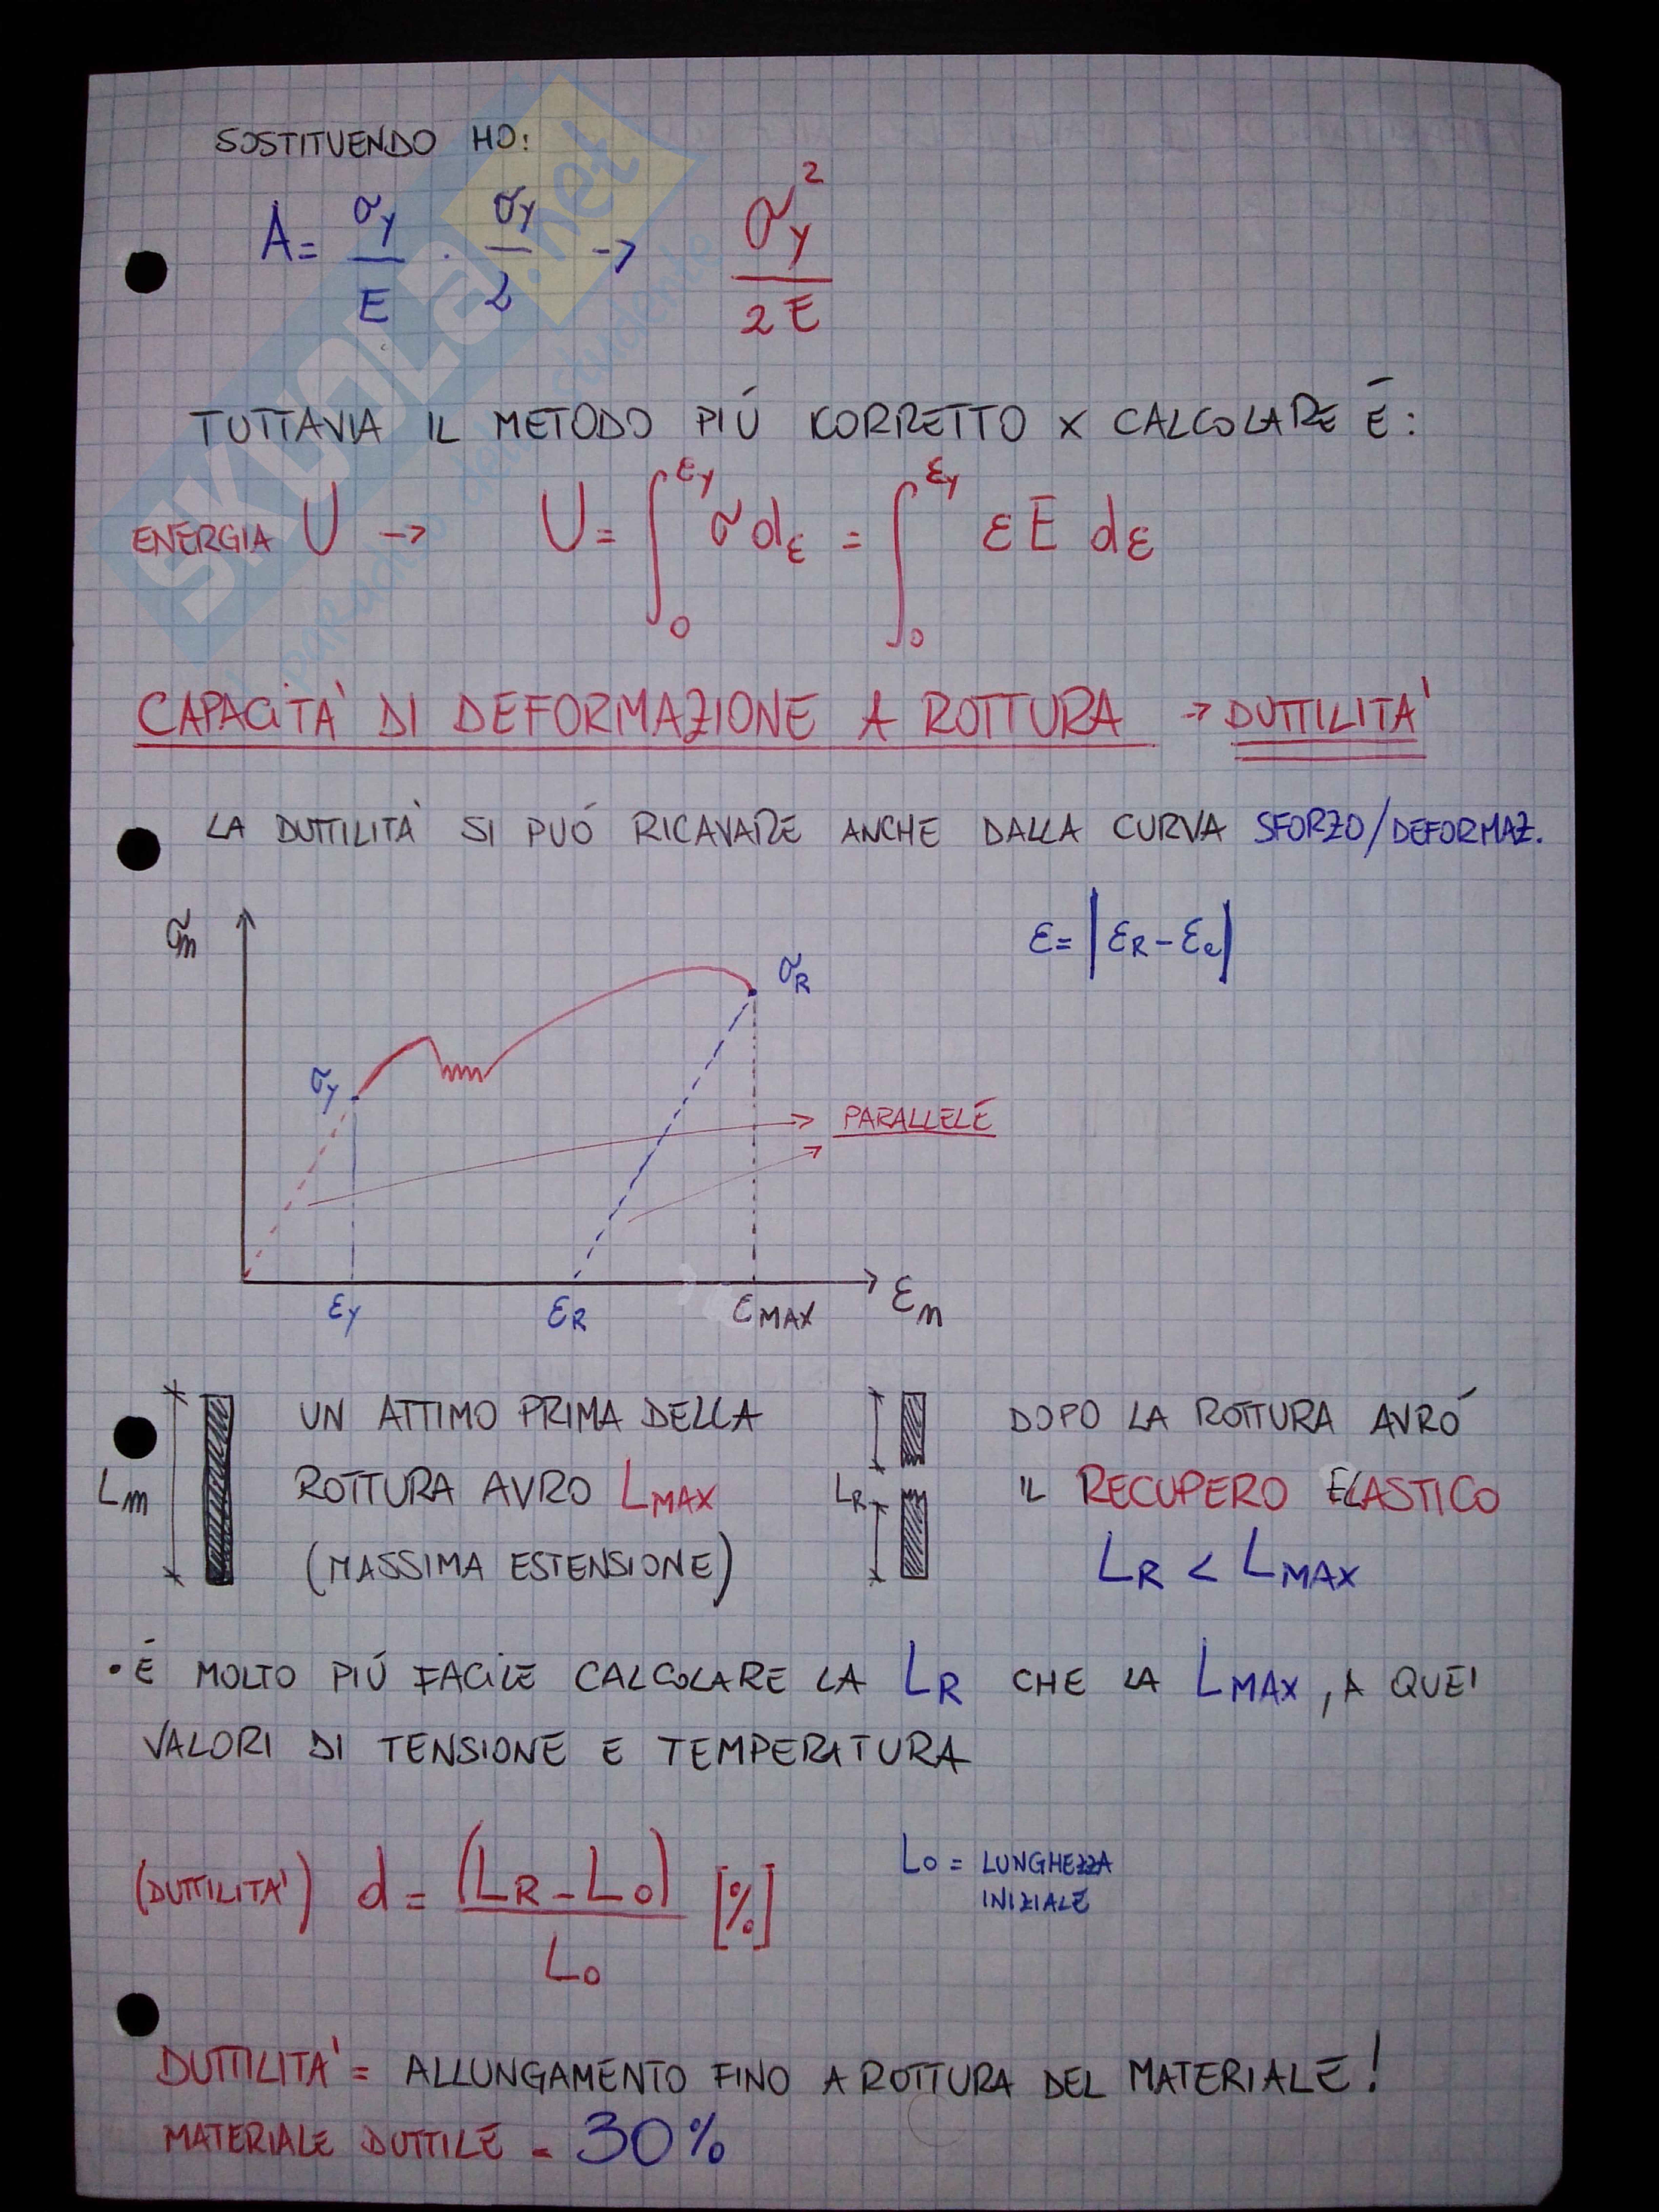 SOSTITUENDO HO:
A = σy/E · σy/2 -> σy²/2E
TUTTAVIA IL METODO PIÚ KORRETTO X CALCOLARE É:
ENERGIA U -> U = ∫₀^εy σ dε = ∫₀^εy εE dε
CAPACITA' DI DEFORMAZIONE A ROTTURA -> DUTTILITA'
LA DUTTILITA' SI PUÓ RICAVARE ANCHE DALLA CURVA SFORZO/DEFORMAZ.
σm
ε = |εR - εe|
σR
σy
PARALLELE
εy
εR
εMAX
εm
Lm
UN ATTIMO PRIMA DELLA
ROTTURA AVRO LMAX
(MASSIMA ESTENSIONE)
LR
DOPO LA ROTTURA AVRÓ
IL RECUPERO ELASTICO
LR < LMAX
• É MOLTO PIÚ FACILE CALCOLARE LA LR CHE LA LMAX, A QUEI
VALORI DI TENSIONE E TEMPERATURA
(DUTTILITA') d = (LR - L0)/L0 [%]
L0 = LUNGHEZZA
INIZIALE
DUTTILITA' = ALLUNGAMENTO FINO A ROTTURA DEL MATERIALE!
MATERIALE DUTTILE = 30%
SKUOLA.net